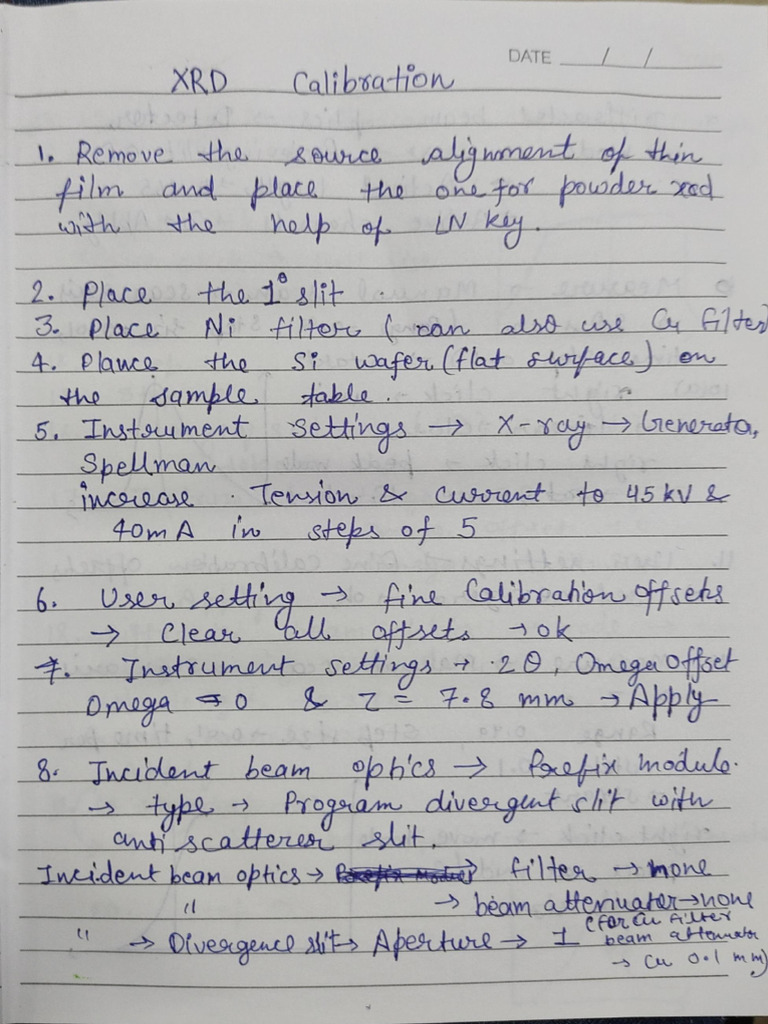 DATE / /
XRD Calibration
1. Remove the source alignment of thin
film and place the one for powder xrd
with the help of LN key.
2. Place the 1° slit.
3. Place Ni filter (can also use Cu filter)
4. Plance the Si wafer (flat surface) on
the sample table.
5. Instrument settings → X-ray → Generator,
Spellman
increase Tension & current to 45 kV &
40mA in steps of 5
6. User setting → fine Calibration offsets
→ Clear all offsets → ok
7. Instrument settings → 2θ, Omega Offset
Omega = 0 & Z = 7.8 mm → Apply
8. Incident beam optics → Prefix module.
→ type → Program divergent slit with
anti scatterer slit.
Incident beam optics → filter → none
" → beam attenuater → none
" → Divergence slit → Aperture → 1 (for Cu filter
beam attenuator
→ Cu 0.1 mm)